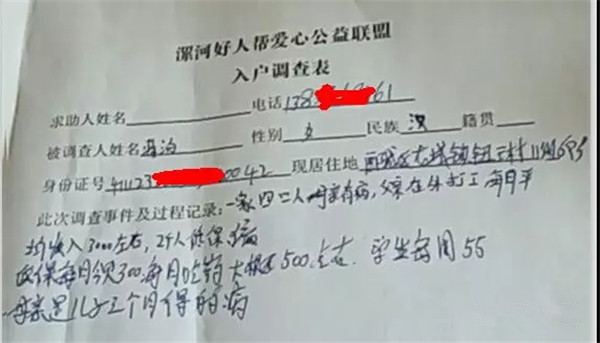 漯河好人帮爱心公益联盟
入户调查表
求助人姓名 电话 138 61
被调查人姓名 性别 女 民族 汉 籍贯
身份证号 41123 0042 现居住地 西城区
此次调查事件及过程记录: 一家四口人 母亲有病, 父亲在外打工 每月平
均收入3000左右, 2个人低保
低保每月领300. 每月吃药大概 500 左右. 学生每周55
母亲是儿子三个月得的病